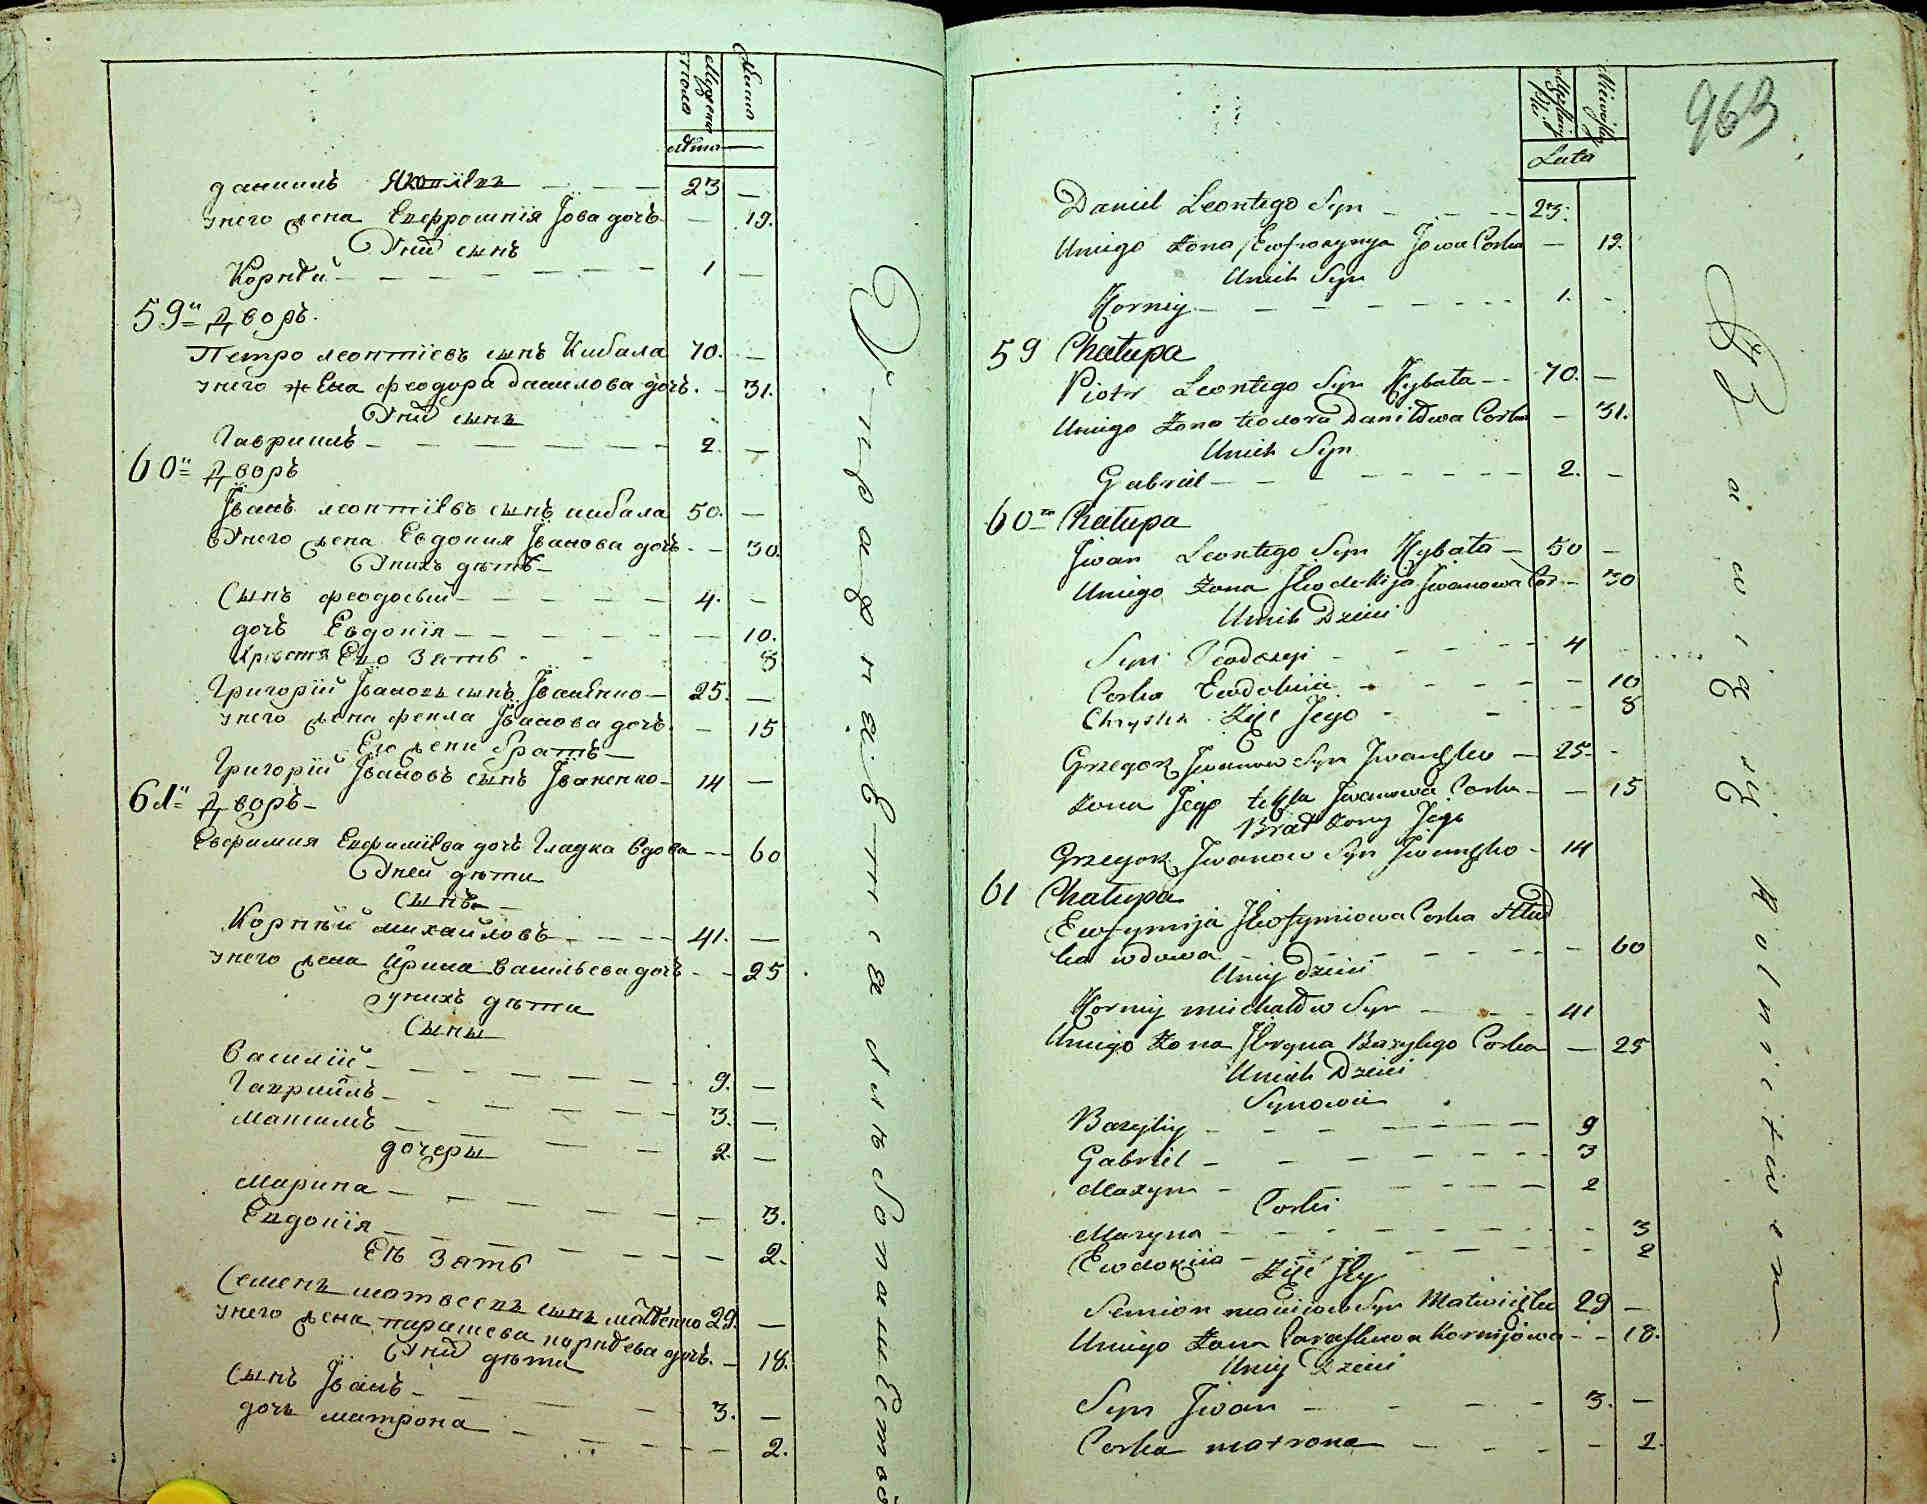 Мужска пола
лѣта
даниилъ Яковлевъ — — — 23 —
Унего жена Евфросинія Іова дочъ — 19.
Уних сынъ
Корнѣй — — — — — — 1 —
59й дворъ.
Петро леонтіевъ сынъ Кибала 70. —
Унего жена феодора данилова дочъ. — 31.
Уних сынъ
Гавриилъ — — — — — — 2. —
60й дворъ
Іванъ леонтіевъ сынъ кибала 50. —
Унего жена Евдокия Іванова дочъ. — 30.
Унихъ дѣтѣ —
Сынъ феодосый — — — — — 4. —
дочъ Евдокія — — — — — — 10.
Христя Его Зятъ - - 8
Григорій Івановъ сынъ Іваненко — 25. —
Унего жена фекла Іванова дочъ. — 15
Его жени братъ —
Григорій Івановъ сынъ Іваненко — 14 —
61й дворъ —
Евфимия Евфиміева дочъ Гладка вдова — — 60
Уней дѣти
Сынъ —
Корнѣй михайловъ — — — — 41. —
Унего жена Ирина васильева дочъ — — 25
Унихъ дѣти
Сыны
Василій — — — — — — 9. —
Гавриилъ — — — — — — 3. —
Максимъ — — — — — 2. —
дочеры
Марина — — — — — — 3.
Евдокія — — — — — — 2.
Еѣ Зятъ
Семенъ матвеевъ сынъ 29. —
Унего жена парасцева корнѣева дочъ. — 18.
Уних дѣти
Сынъ Іванъ — — — — — 3. —
дочъ матрона — — — — — 2.
963
Męzkiej Płci
Lata
Daniel Leontego Syn — — — 23.
Uniego Żona Ewfrozynya Jowa Corka — 19.
Unich Syn
Korniy — — — — — — 1. -
59 Chałupa
Piotr Leontego Syn Kybała — - 70. —
Uniego Żona teodora Daniłowa Corka — 31.
Unich Syn
Gabriel — — — — — — 2. —
60ta Chałupa
Jwan Leontego Syn Kybała — 50 —
Uniego Żona Ewdokija Jwanowa Cor — 30
Unich Dzieci
Syn Teodozyi — — — — — 4
Corka Ewdokiia — — — — — 10
Chrystia Zięć Jego - - - 8
Grzegorz Jwanow Syn Jwanęko — 25. -
Żona Jego tekla Jwanowa Corka — — 15
Brat Żony Jego
Grzegorz Jwanow Syn Jwanęko — 14
61 Chałupa
Ewfymija Ewfymiowa Corka Hład
ka wdowa — — — — — — 60
Uniy dzieci
Korniy michałow Syn — — — 41
Uniego Żona Iryna Bazylego Corka — 25
Unich Dzieci
Synowie
Bazyliy — — — — — — 9
Gabriel — — — — — — 3
Maxym — — — — — — 2
Corki
Maryna — — — — — — 3
Ewdokiia — — — — — — 2
Zięć Jey
Semion Syn 29 —
Uniego Żona Paraskewa Kornijowa — — 18.
Uniy Dzieci
Syn Jwan — — — — 3. —
Corka matrona — — — — — 2.